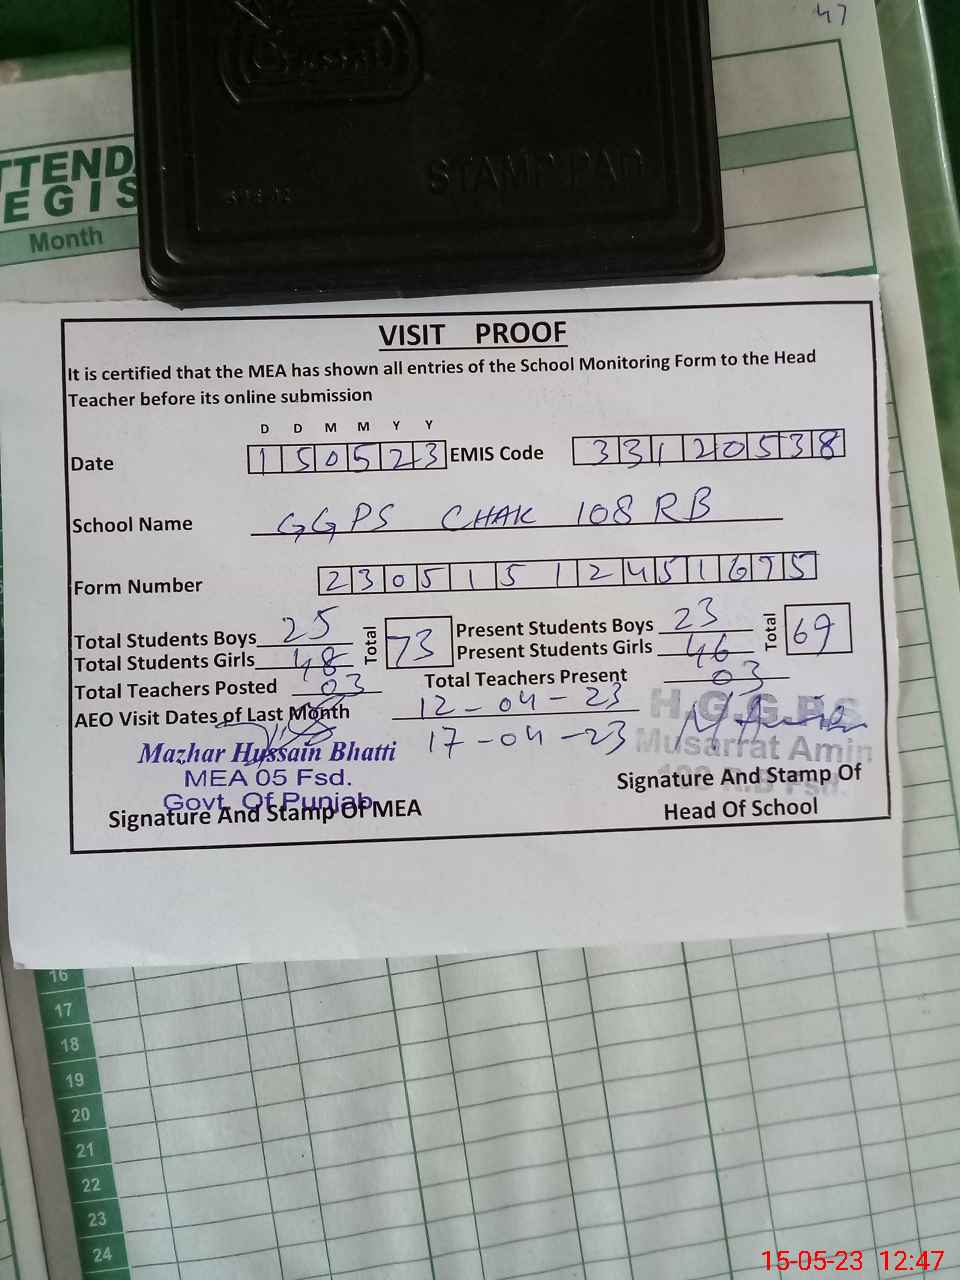 47
STAMP PAD
TTENDA
EGIS
Month
VISIT PROOF
It is certified that the MEA has shown all entries of the School Monitoring Form to the Head
Teacher before its online submission
D D M M Y Y
Date 150523 EMIS Code 33120538
School Name GGPS CHAK 108 RB
Form Number 23051512451675
Total Students Boys 25 Total 73 Present Students Boys 23 Total 69
Total Students Girls 48 Present Students Girls 46
Total Teachers Posted 03 Total Teachers Present 03
AEO Visit Dates of Last Month 12-04-23
17-04-23
H.G.G.P.S
Musarrat Amin
108 R.B Fsd.
Mazhar Hussain Bhatti
MEA 05 Fsd.
Govt. Of Punjab
Signature And Stamp Of MEA
Signature And Stamp Of
Head Of School
16
17
18
19
20
21
22
23
24
15-05-23 12:47